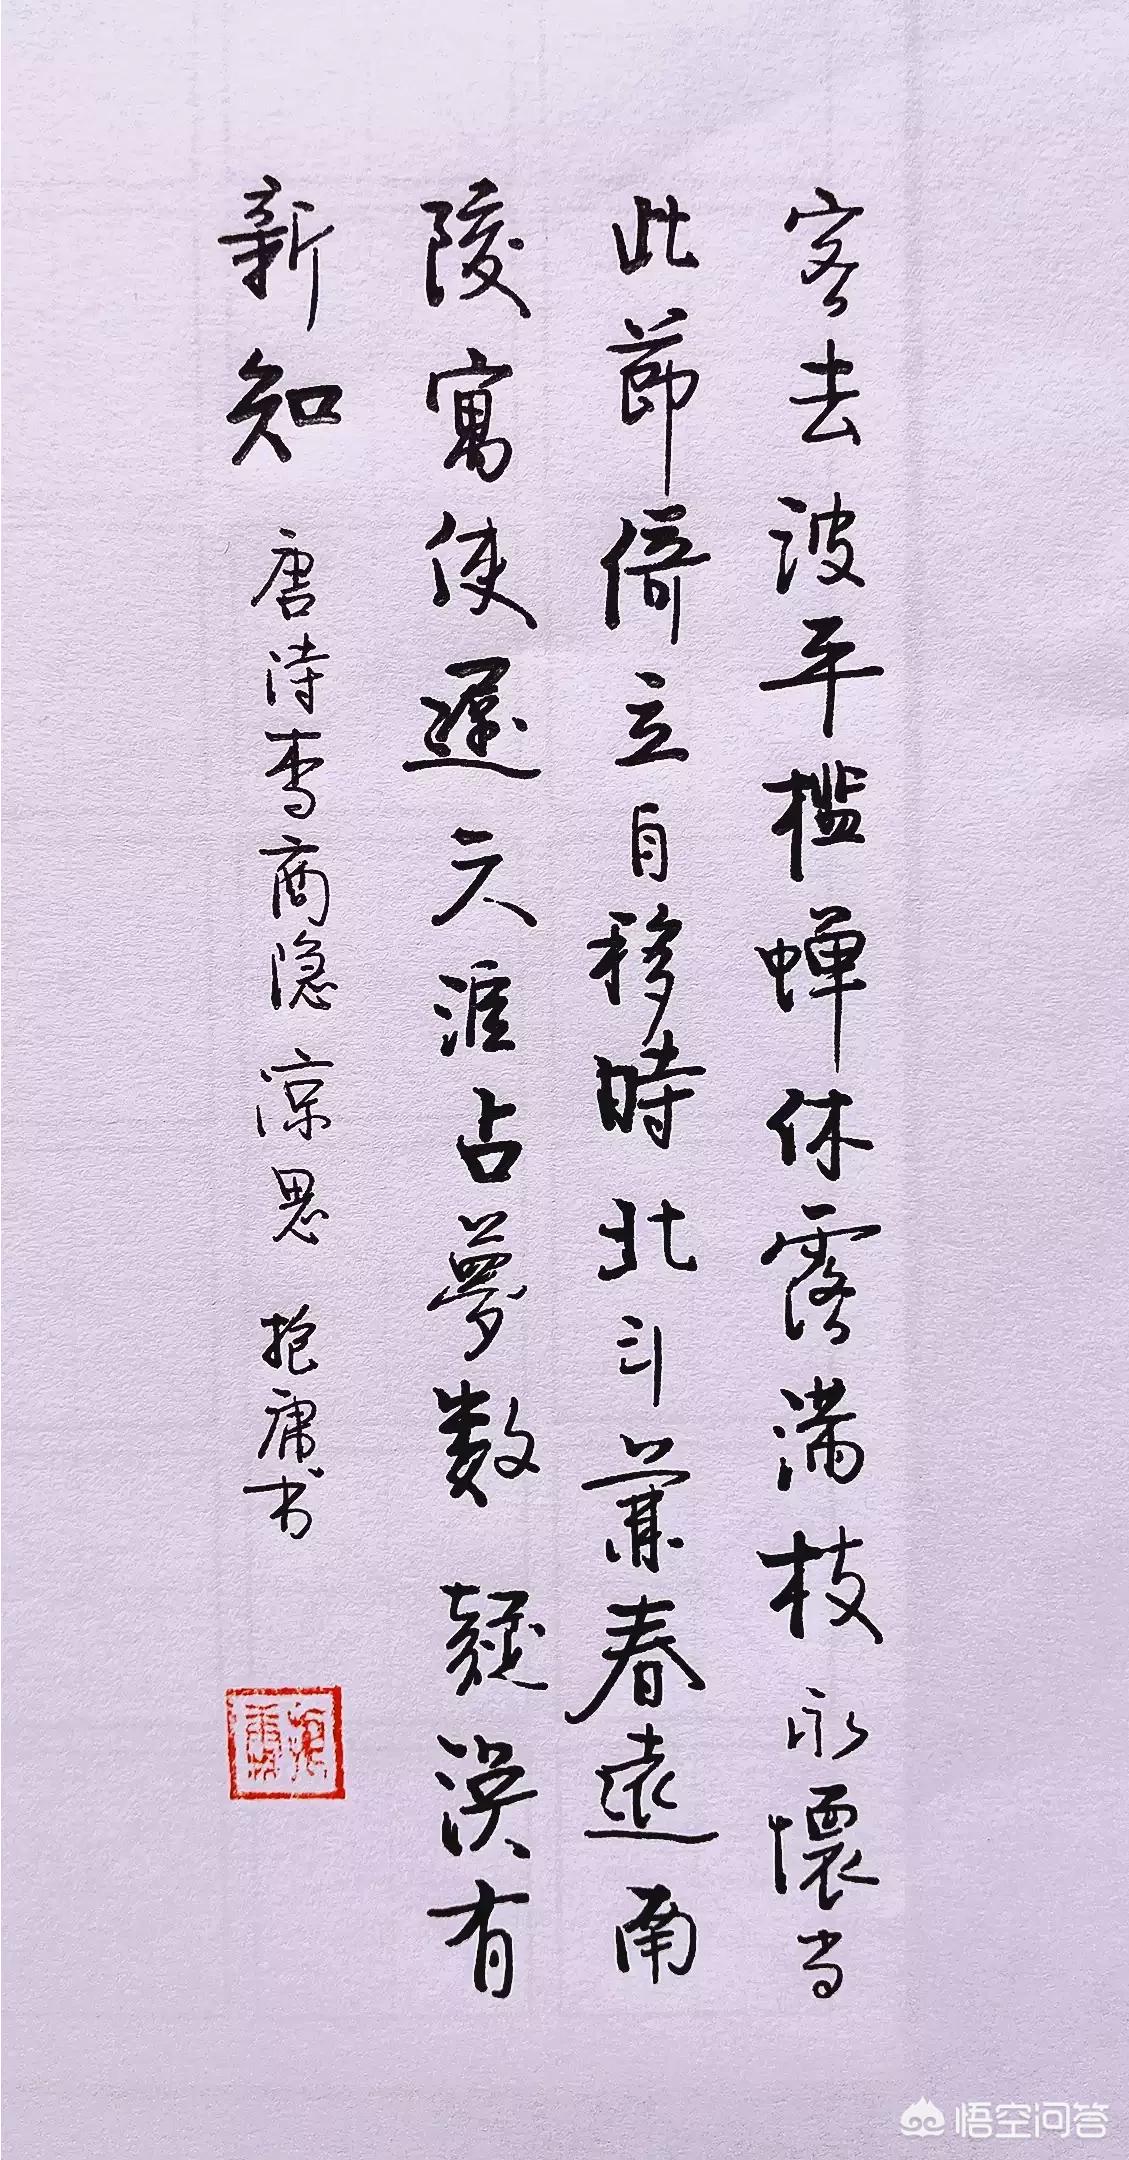 客去波平槛蝉休露满枝永懷当
此節倚立自移時北斗兼春遠南
陵寓使遲天涯占夢数疑误有
新知 唐诗李商隐凉思 抱庸书
抱庸
悟空问答